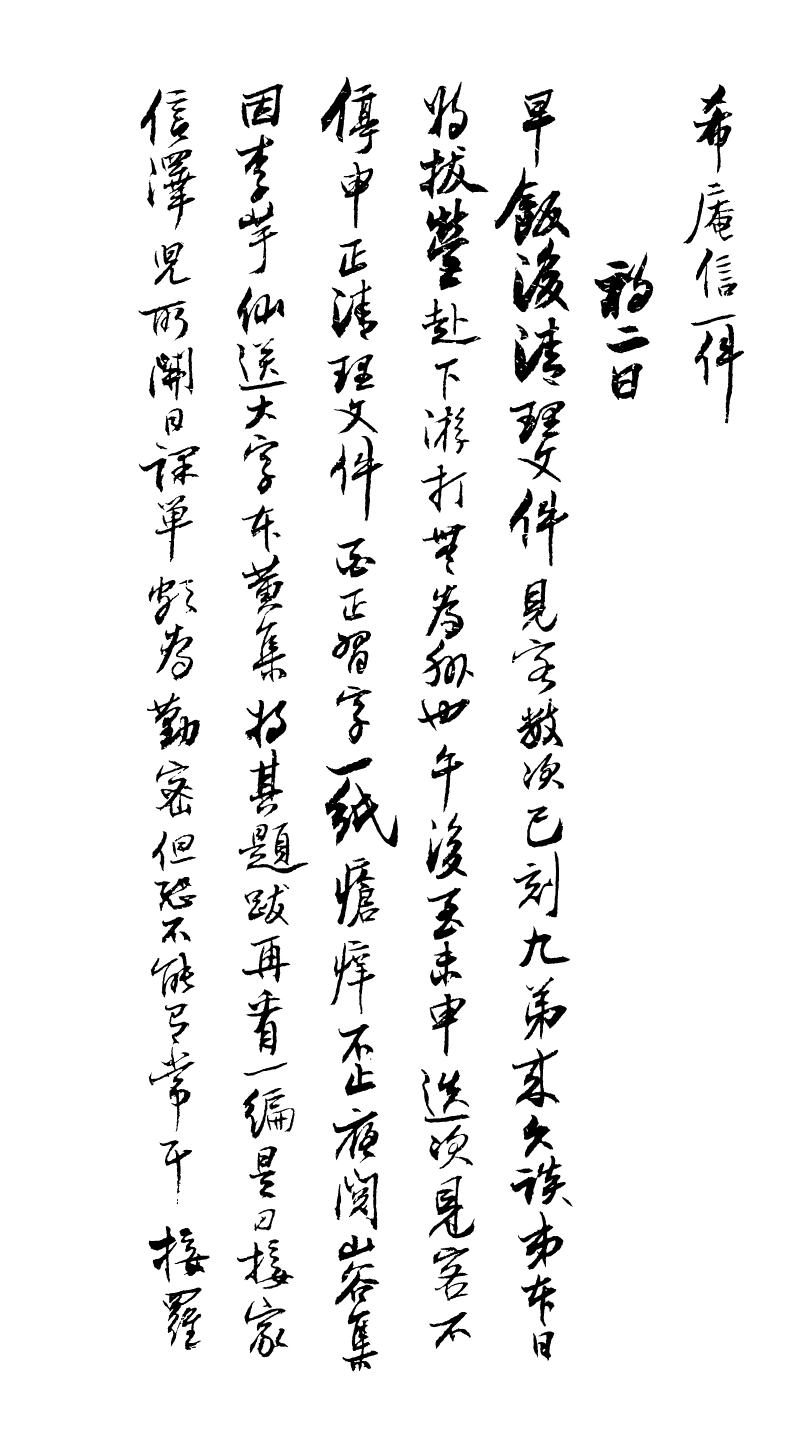 希庵信一件
初二日
早飯後清理文件見客數次巳刻九弟來久談弟本日
將拔營赴下游打無為州也午後至未申迭次見客不
停申正清理文件酉正習字一紙瘡癢不止夜閱山谷集
因李芋仙送大字本黃集將其題跋再看一編是日接家
信澤兒所開日課單頗為勤密但恐不能有常耳接羅